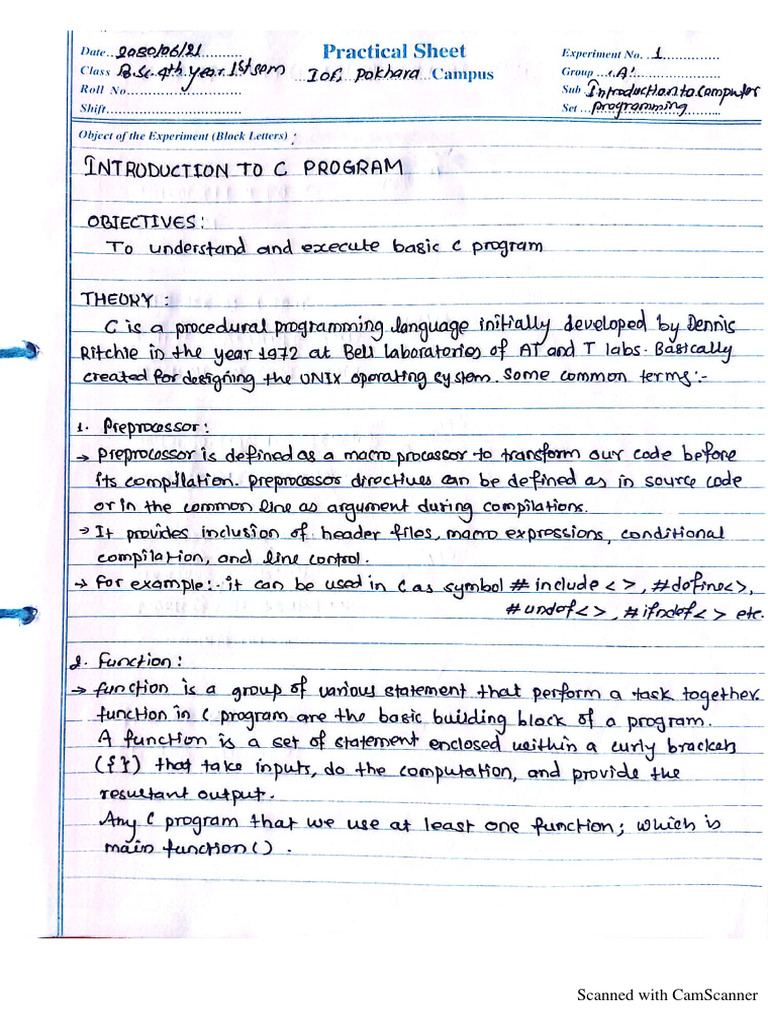 Date...2080/06/21.......... Practical Sheet Experiment No. .1..............
Class B.Sc. 4th year 1st sem ...IOF, Pokhara...Campus Group ...'A'....................
Roll No............................... Sub Introduction to computer
Shift.................................... Set ...programming.........
Object of the Experiment (Block Letters) :
INTRODUCTION TO C PROGRAM
OBJECTIVES:
To understand and execute basic C program
THEORY :
C is a procedural programming language initially developed by Dennis
Ritchie in the year 1972 at Bell laboratories of AT and T labs. Basically
created for designing the UNIX operating system. Some common terms:-
1. Preprocessor:
→ Preprocessor is defined as a macro processor to transform our code before
its compilation. preprocessor directives can be defined as in source code
or in the common line as argument during compilations.
→ It provides inclusion of header files, macro expressions, conditional
compilation, and line control.
→ For example:- it can be used in C as symbol # include < >, #define< >,
# undef< >, # ifndef< > etc.
2. Function:
→ function is a group of various statement that perform a task together.
function in C program are the basic building block of a program.
A function is a set of statement enclosed within a curly brackets
({}) that take inputs, do the computation, and provide the
resultant output.
Any C program that we use at least one function; which is
main function().
Scanned with CamScanner